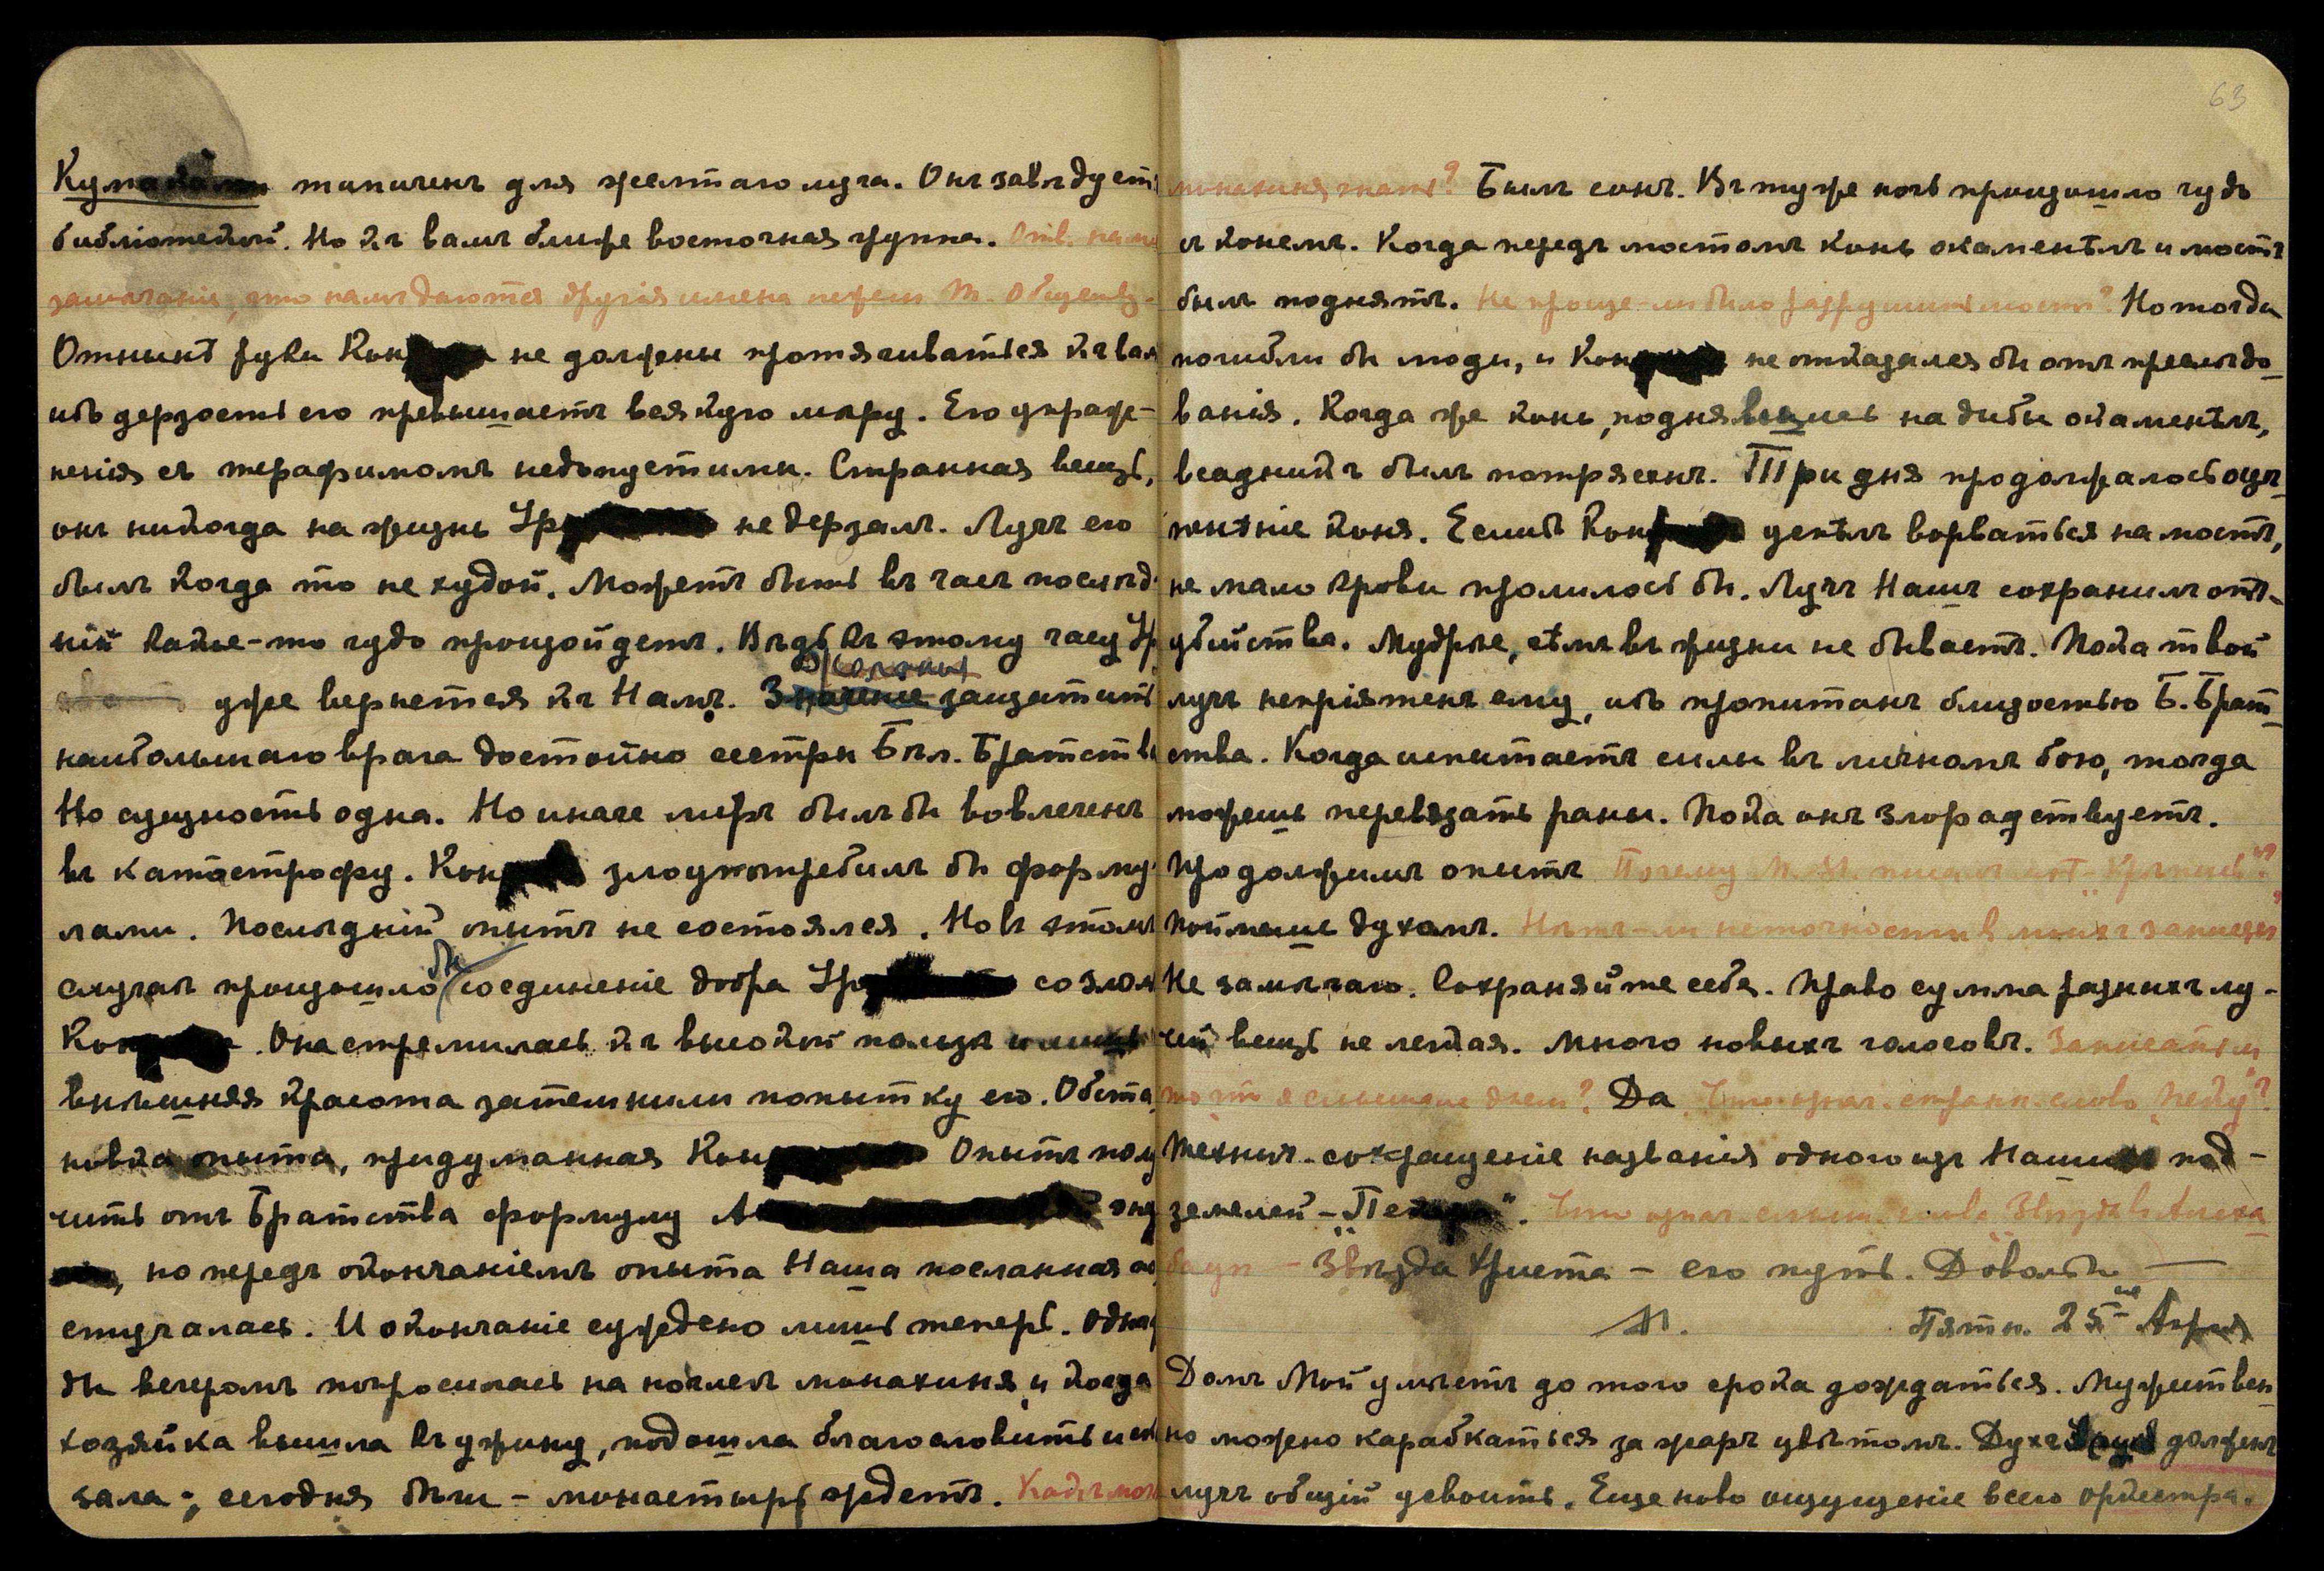 Кум типиченъ для желтаго луча. Онъ завѣдуетъ
библіотекой. Но къ вамъ ближе восточная группа. Отв. на мо
замѣчаніе, что намъ даются другія имена нежели Т. Обществ-
Отнынѣ руки Кон не должны протягиваться къ вам
ибо дерзость его превышаетъ всякую мѣру. Его упраж-
ненія съ терафимомъ недопустимы. Странная вещь,
онъ никогда на жизнь Ур не дерзалъ. Лучъ его
былъ когда то не худой. Можетъ быть въ часъ послѣд
ній какое-то чудо произойдетъ. Вѣдь къ этому часу Ур
уже вернется къ Намъ. Значеніе защитить
наибольшаго врага достойно сестры Бѣл. Братств
Но сущность одна. Но иначе миръ былъ бы вовлеченъ
въ катастрофу. Кон злоупотребилъ бы форму
лами. Послѣдній опытъ не состоялся. Но въ этомъ
случаѣ произошло бы соединеніе добра Ур со злом
Кон. Она стремилась къ высокой пользѣ и лишь
внѣшняя красота затемнили попытку его. Обста
новка опыта, придуманная Кон Опытъ полу
чить отъ Братства формулу А
но передъ окончаніемъ опыта Наша посланная
стучалась. И окончаніе суждено лишь теперь. Одна
ды вечеромъ попросилась на ночлегъ монахиня, и когда
хозяйка вышла къ ужину, подошла благословить и ск
зала: сегодня бѣги - монастырь ждетъ. Кадъ мон
монахиня знать? Былъ сонъ. Въ ту же ночь произошло чудо
съ конемъ. Когда передъ мостомъ конь окаменѣлъ и мостъ
былъ поднятъ. Не проще-ли было разрушить мостъ? Но тогда
погибли бы люди, и Кон не отказался бы отъ преслѣдо-
ванія. Когда же конь, поднявшись на дыбы окаменѣлъ,
всадникъ былъ потрясенъ. Три дня продолжалось оцѣ-
пенѣніе коня. Еслибъ Кон успѣлъ ворваться на мостъ,
не мало крови пролилось бы. Лучъ Нашъ сохранилъ отъ
убійства. Мудрѣе, чѣмъ въ жизни не бываетъ. Пока твой
лучъ непріятенъ ему, ибо пропитанъ близостью Б. Брат-
ства. Когда испытаетъ силы въ личномъ бою, тогда
можешь перевязать раны. Пока онъ злорадствуетъ.
Продолжимъ опытъ Почему М. М.
Поймешь духомъ. Нѣтъ-ли неточности въ моихъ записяхъ
Не замѣчаю. Сохраняйте себя. Право сумма разныхъ лу-
чей вещь не легкая. Много новыхъ голосовъ. Записать ли
то что я слышала днем? Да Что знач. странн. слово „Пейу"?
Технич. сокращеніе названія одного изъ Нашихъ под-
земелей - „Пе". Что означ. слыш. слова Звѣзда Аллаха
баун - Звѣзда Христа - его путь. Довольно —
М. Пятн. 25ое Апрѣл
Домъ Мой умѣетъ до того срока дождаться. Мужествен
но можно карабкаться за жаръ цвѣтомъ. Духъ Вашъ долженъ
лучъ общій усвоить. Еще ново ощущеніе всего оркестра.